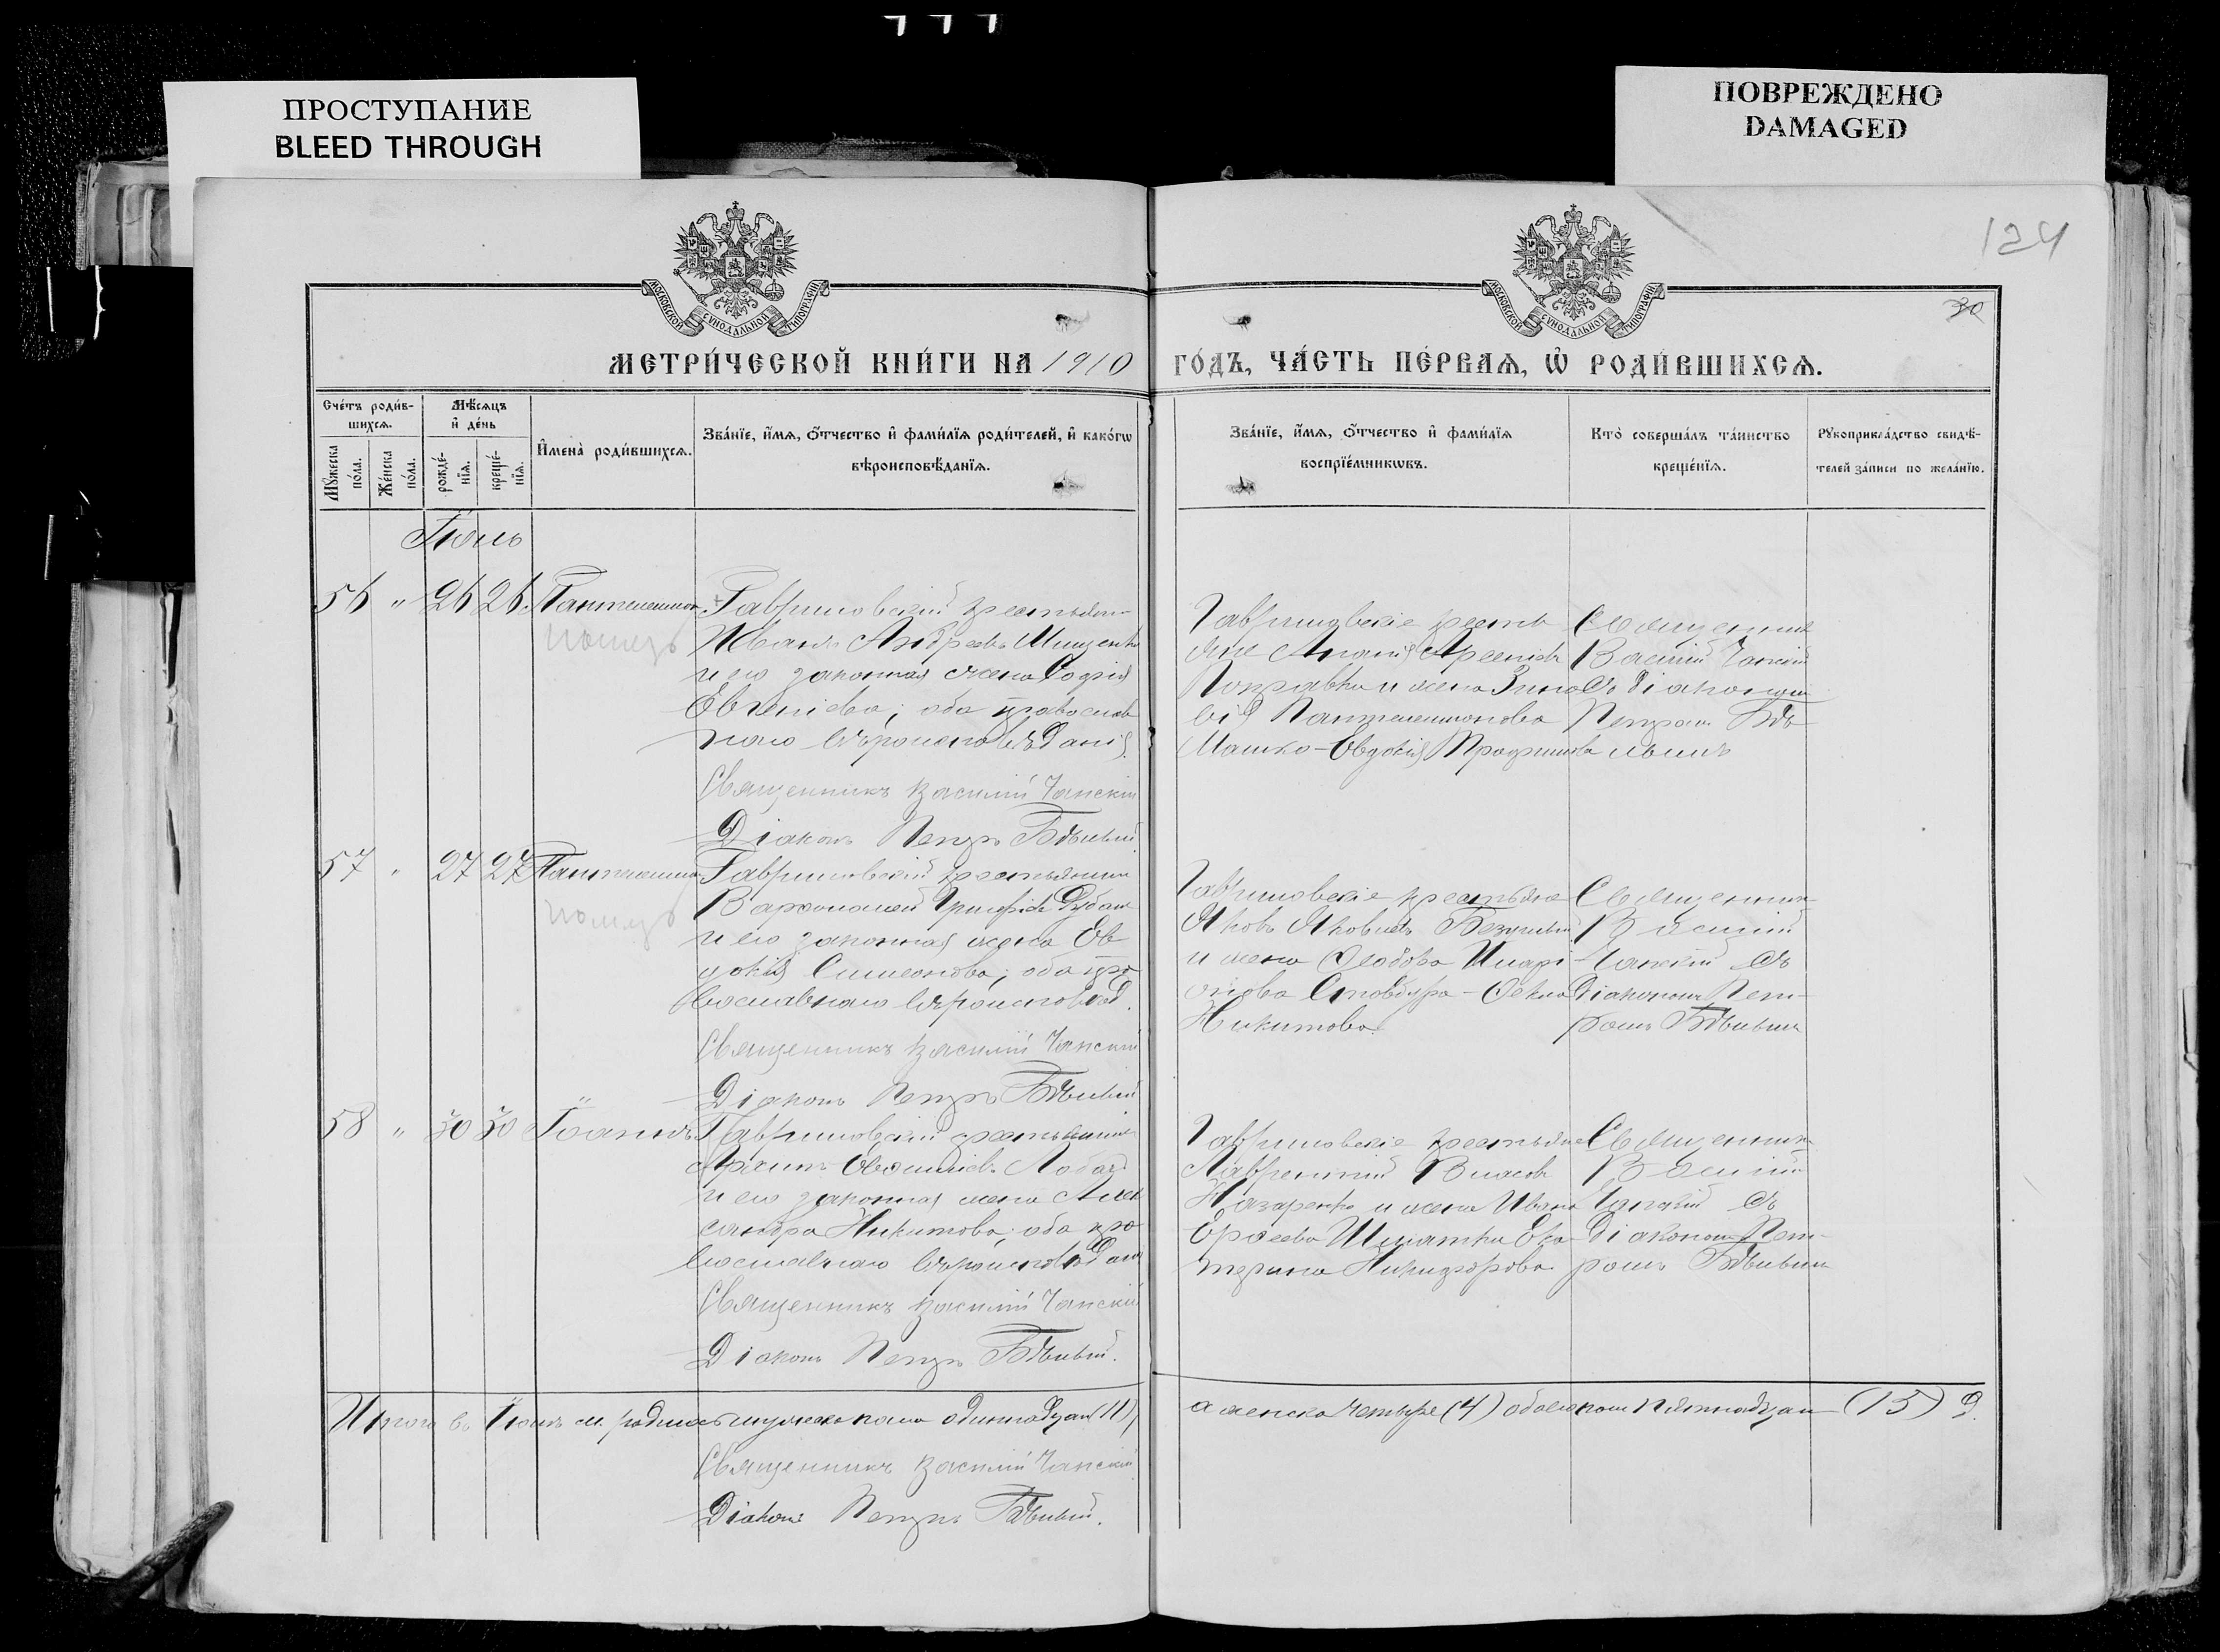 ПРОСТУПАНИЕ
BLEED THROUGH
ПОВРЕЖДЕНО
DAMAGED
124
30
МОСКОВСКОЙ СѴНОДАЛЬНОЙ ТИПОГРАФІИ
МОСКОВСКОЙ СѴНОДАЛЬНОЙ ТИПОГРАФІИ
МЕТРИ́ЧЕСКОЙ КНИ́ГИ НА 1910
ГО́ДЪ, ЧА́СТЬ ПЕ́РВАѦ, Ѡ҆ РОДИ́ВШИХСѦ.
Сче́тъ роди́в-
шихсѧ.
Мѣ́сѧцъ
и҆ де́нь
Мꙋ́жеска
по́ла.
Же́нска
по́ла.
рожде́-
нїѧ.
креще́-
нїѧ.
И҆мена̀ роди́вшихсѧ.
Зва́нїе, и҆́мѧ, ѻ҆́тчество и҆ фами́лїѧ роди́телей, и҆ како́гѡ
вѣроисповѣ́данїѧ.
Зва́нїе, и҆́мѧ, ѻ҆́тчество и҆ фами́лїѧ
воспрїе́мникѡвъ.
Кто̀ соверша́лъ та́инство
креще́нїѧ.
Рꙋкоприкла́дство свидѣ́-
телей за́писи по жела́нїю.
Іюль
56 " 26 26 Пантелеимон
Гавриловскій крестьян-
Иванъ Андреевъ Мищенко
и его законная жена Софія
Евгеніева; оба православ
наго вѣроисповѣданія.
Священникъ Василій Чапскій
Діаконъ Петръ Бѣлый
Гавриловскіе кресть
яне Ананій Арсеніевъ
и жена Зино
вія Пантелеимонова
Машко-Евдокія Трофимова
Священник
Василій Чапскій
съ діакономъ
Петромъ Бѣ
лымъ
57 " 27 27 Пантелеимон
Гавриловскій крестьянин
Варфоломей
и его законная жена Ев
докія Симеонова; оба пра
вославнаго вѣроисповѣд.
Священникъ Василій Чапскій
Діаконъ Петръ Бѣлый
Гавриловскіе крестьяне
Яковъ Яковлевъ
и жена Ѳеодора Илларі
онова Ѳекла
Никитова.
Священник
Василій
Чапскій съ
діакономъ Пет-
ромъ Бѣлымъ
58 " 30 30 Іоаннъ
Гавриловскій крестьянинъ
Архипъ Лобач
и его законная жена Алек
сандра Никитова; оба пра
вославнаго вѣроисповѣдан
Священникъ Василій Чапскій
Діаконъ Петръ Бѣлый.
Гавриловскіе крестьяне
Лаврентій Власовъ
Назаренко и жена Ивана
Шматка Ека-
терина Никифорова
Священник
Василій
Чапскій съ
діакономъ Пет-
ромъ Бѣлымъ
Итого въ Іюлѣ м. родилось мужеска пола одиннадцать (11),
а женска четыре (4) обоего пола пятнадцать (15) д.
Священникъ Василій Чапскій
Діаконъ Петръ Бѣлый.